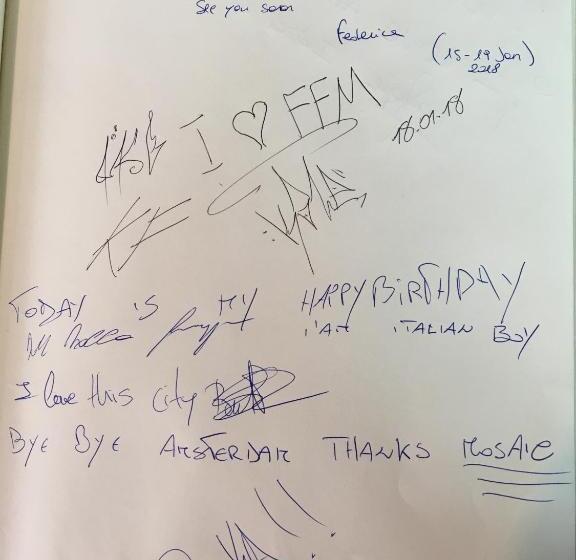 See you soon
Federica (15-19 Jan)
2018
I ♡ FFM
18.01.18
TODAY IS MY HAPPY BIRTHDAY
I'AM ITALIAN BOY
I love this city
BYE BYE AMSTERDAM THANKS MOSAIC